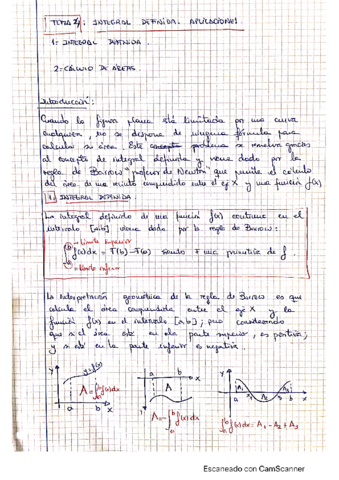 TEMA 4: INTEGRAL DEFINIDA. APLICACIONES.
1: INTEGRAL DEFINIDA.
2: CÁLCULO DE ÁREAS
Introducción:
Cuando la figura plana está limitada por una curva
cualquiera, no se dispone de ninguna fórmula para
calcular su área. Este problema se resuelve gracias
al concepto de integral definida y viene dado por la
regla de Barrow "profesor de Newton" que permite el cálculo
del área de una comprendido entre el eje X y una función f(x)
1. INTEGRAL DEFINIDA:
La integral definida de una función f(x) continua en el
intervalo [a,b] viene dada por la regla de Barrow:
b → Límite superior
∫ f(x)dx = F(b) - F(a) siendo F una primitiva de f
a → Límite inferior
La interpretación geométrica de la regla de Barrow es que
calcula el área comprendida entre el eje X y la
función f(x) en el intervalo [a,b]; pero considerando
que si el área está en la parte superior, es positiva,
y si está en la parte inferior es negativa
y y=f(x) A=∫ₐᵇf(x)dx a b x
a b x A y A=-∫ₐᵇf(x)dx
y A₁ A₂ A₃ a b x
∫ₐᵇf(x)dx = A₁ - A₂ + A₃
Escaneado con CamScanner